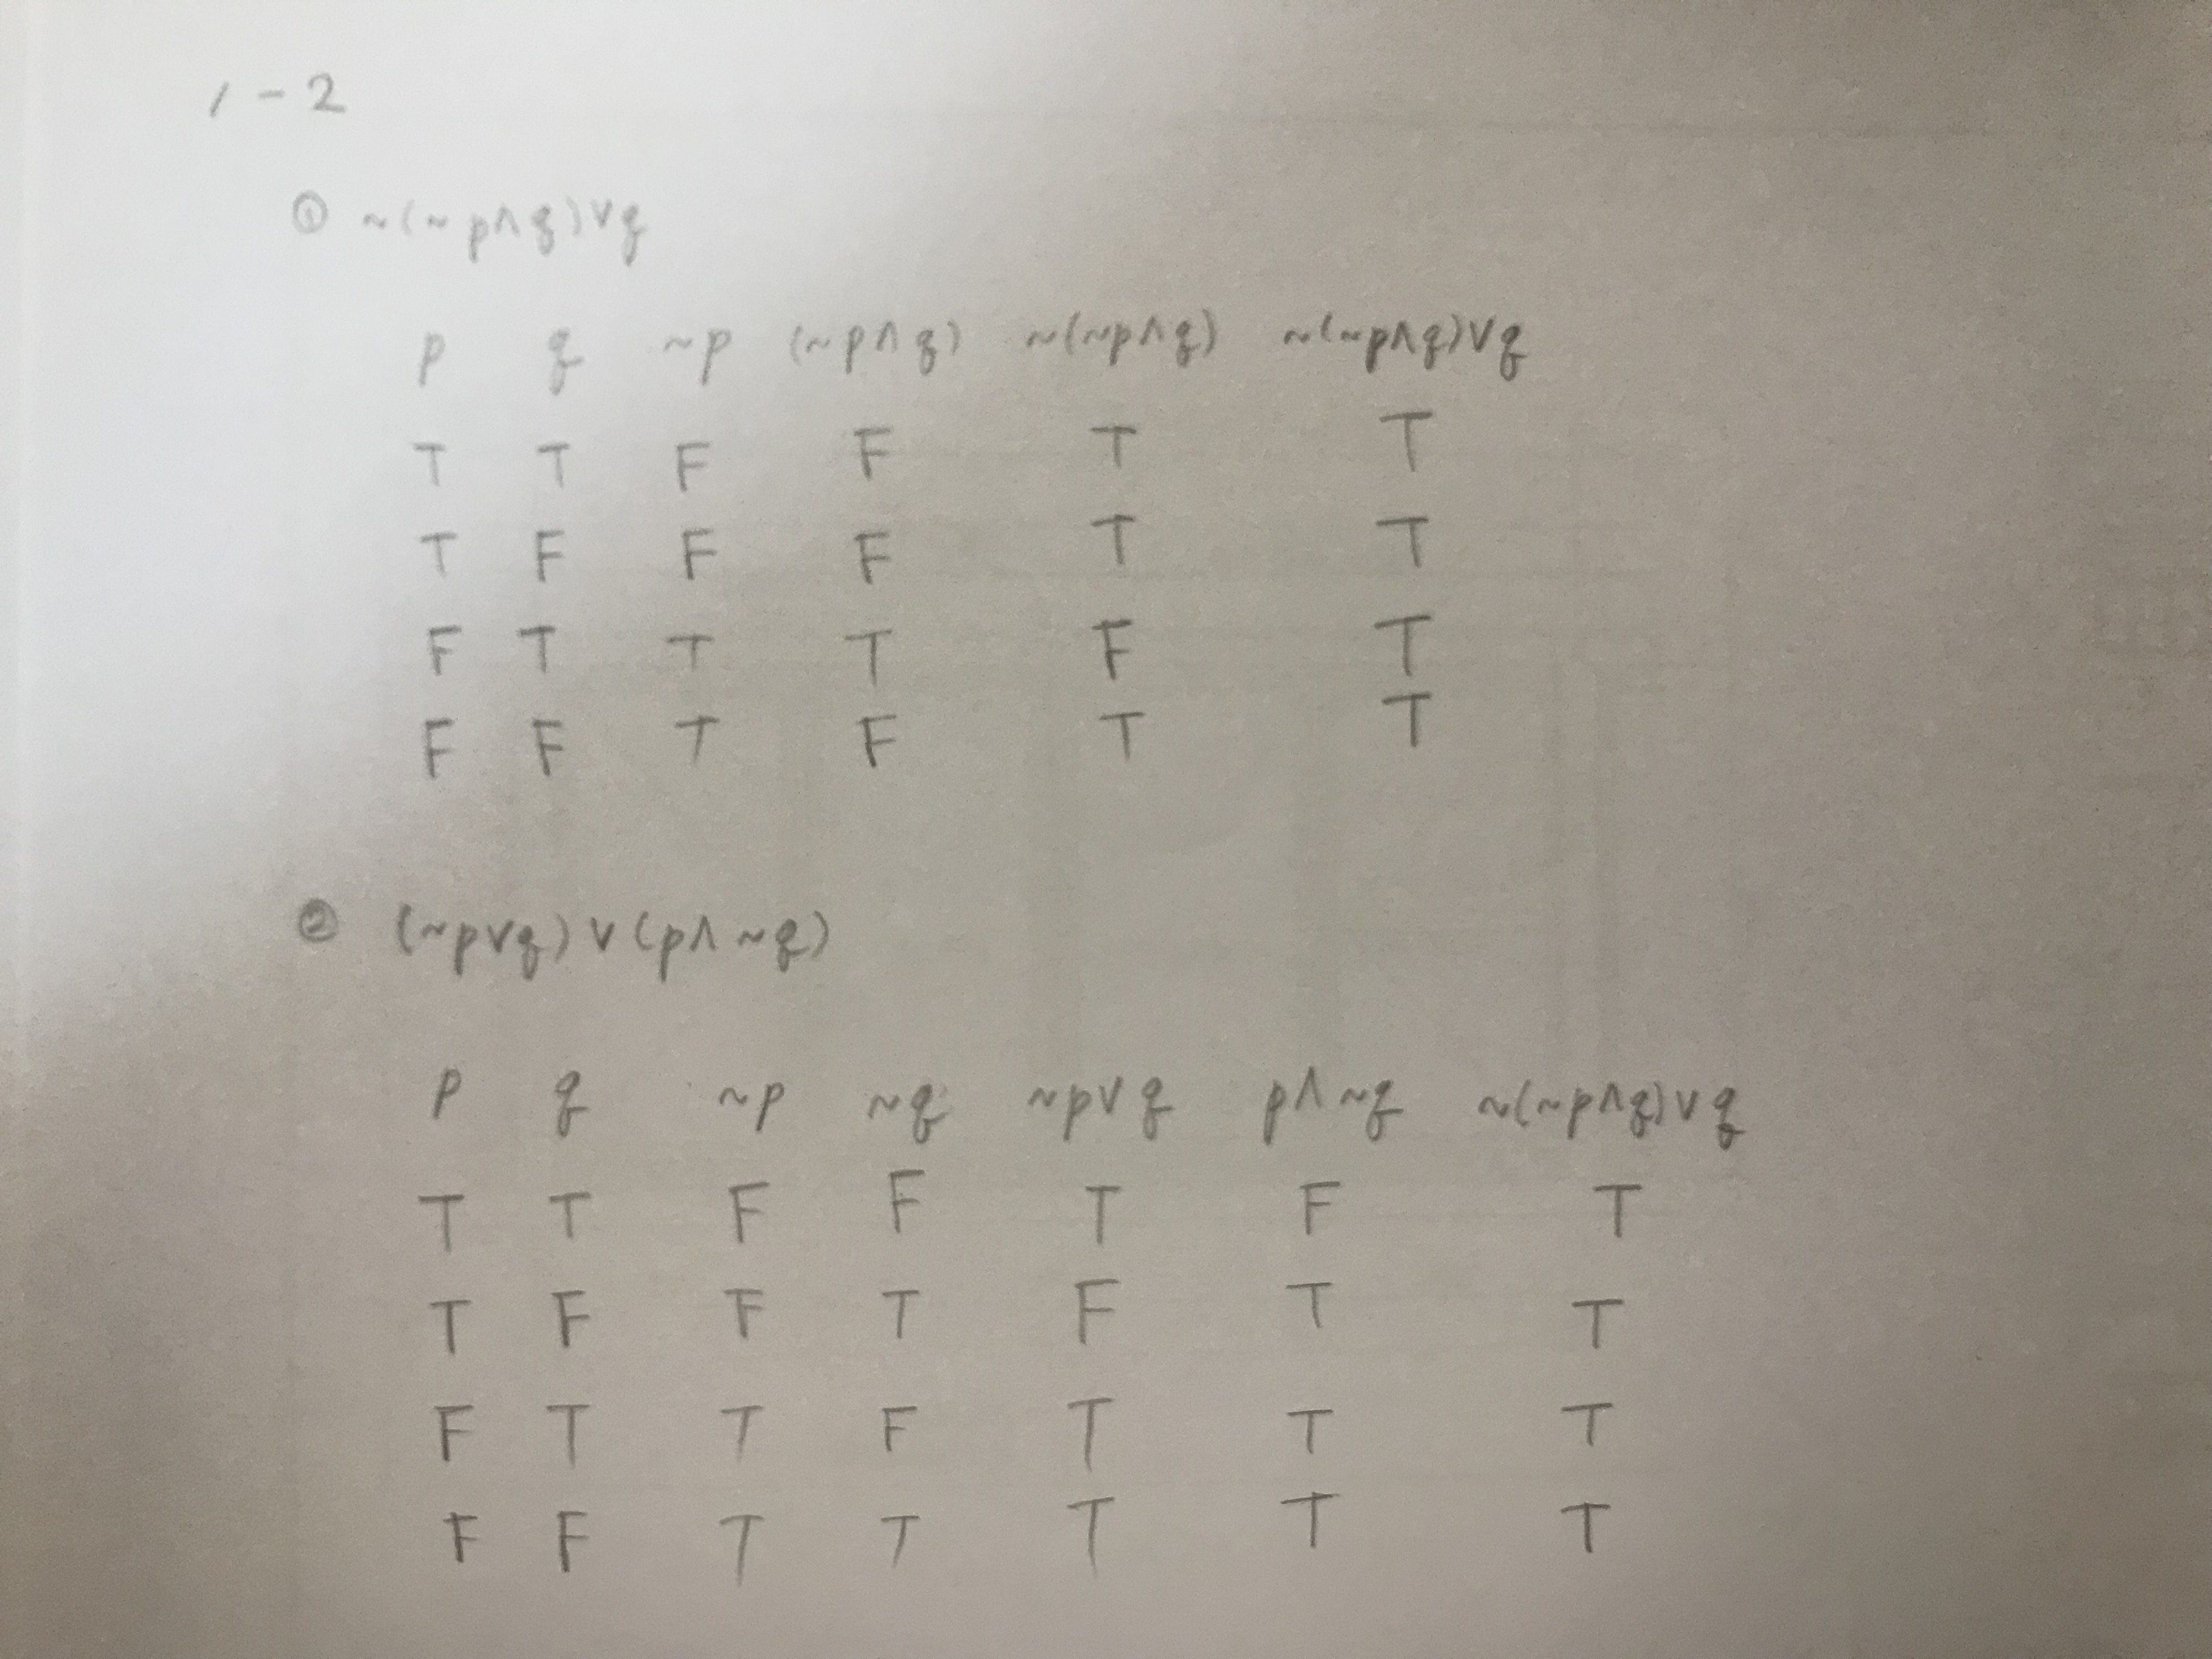 1-2
① ~(~p∧q)∨q
p q ~p (~p∧q) ~(~p∧q) ~(~p∧q)∨q
T T F F T T
T F F F T T
F T T T F T
F F T F T T
② (~p∨q)∨(p∧~q)
p q ~p ~q ~p∨q p∧~q ~(~p∧q)∨q
T T F F T F T
T F F T F T T
F T T F T T T
F F T T T T T